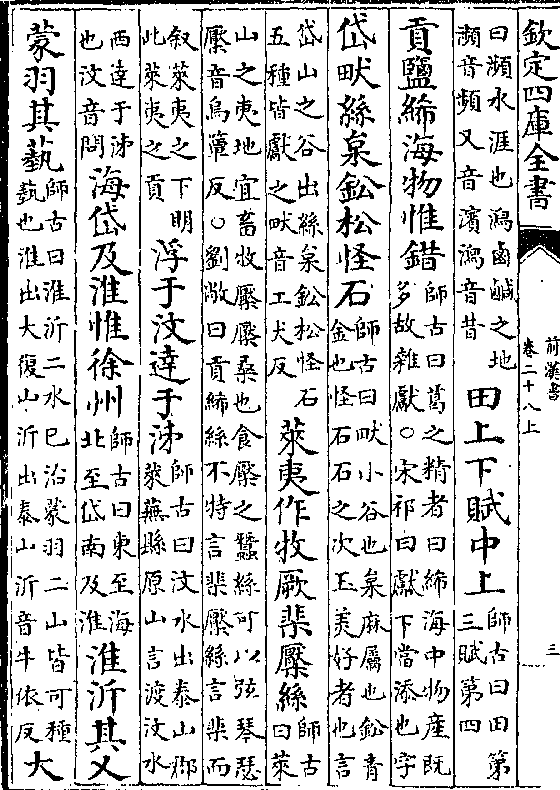 欽定四庫全書
前漢書
卷二十八上
三
曰瀕水涯也瀉鹵鹹之地
瀕音頻又音濱瀉音昔
田上下賦中上
師古曰田第
三賦第四
貢鹽絺海物惟錯
師古曰葛之精者曰絺海中物產既
多故雜獻○宋祁曰獻下當添也字
岱畎絲枲鈆松怪石
師古曰畎小谷也枲麻屬也鈆青
金也怪石石之次玉美好者也言
岱山之谷出絲枲鈆松怪石
五種皆獻之畎音工犬反
萊夷作牧厥棐檿絲
師古
曰萊
山之夷地宜畜牧檿檿桑也食檿之蠶絲可以弦琴瑟
檿音烏簟反○劉敞曰貢絺絲不特言棐檿絲言棐而
叙萊夷之下明
此萊夷之貢
浮于汶達于泲
師古曰汶水出泰山郡
萊蕪縣原山言渡汶水
西達于泲
也汶音問
海岱及淮惟徐州
師古曰東至海
北至岱南及淮
淮沂其乂
蒙羽其蓺
師古曰淮沂二水已治蒙羽二山皆可種
蓺也淮出大復山沂出泰山沂音牛依反
大